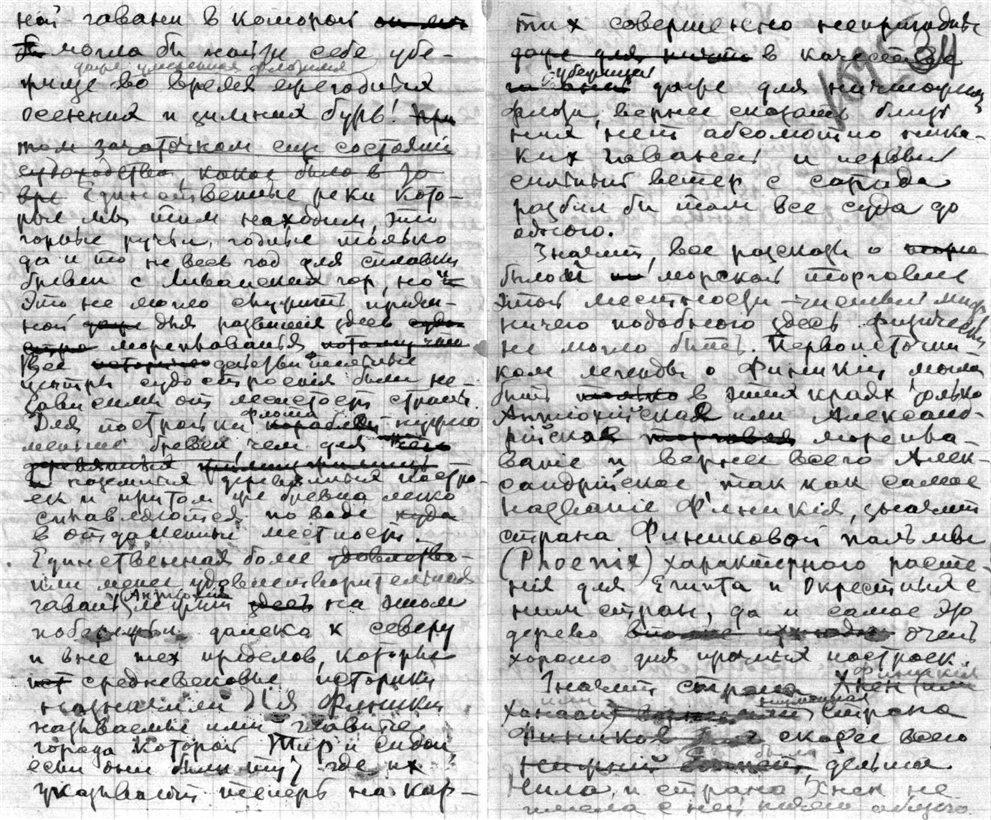 ной гавани в которой
могла бы найти себе убе-
даже умеренная флотилия
жище во время ежегодных
осенних и зимних бурь! При
том зачаточном еще состоянии
судоходства, какое было в то
Единственные реки кото-
рые мы там находим, это
горные ручьи, годные только
да и то не весь год для сплавки
бревен с Ливанских гор, но и
это не могло служить причи-
ной для развития здесь
мореплавания потому что
Все
центры судостроения были не-
зависимы от лесистости страны.
Для постройки флота нужно
меньше бревен чем для
наземных деревянных постро-
ек и притом же бревна легко
сплавляются по воде куда
в отдаленный местности.
Единственная более
или менее удовлетворительная
гавань (Антиохия) лежит здесь на этом
побережьи далеко к северу
и вне тех пределов, которые
средневековые историки
назначили для Финикии
называемые ими главные
города которой Тир и Сидон,
если они были там, где их
указывают теперь на кар-
тах совершенно непригодны
в качестве
убежища даже для ничтожных
флота, вернее сказать близ
них нет абсолютно ника-
ких гаваней и первый
сильный ветер с запада
разбил бы там все суда до
одного.
Значит, все рассказы о
былой морской торговле
этой местности - чистый миф
ничего подобного здесь физически
не могло быть. Первоисточни-
ком легенды о Финикии могла
быть в этих краях только
Антиохийская или Александ-
рийская торговая морепла-
вание и вернее всего Алек-
сандрийское так как самое
название Финикия, значит
страна Финиковой пальмы
(Phoenix) характерного расте-
ния для Египта и окрестных с
ним стран, да и самое это
дерево очень
хорошо для прочных построек.
Значит страна Хнеи или
Ханаан страна
Фиников скорее всего
дельта
Нила, и страна Хнеи не
имела с ней ничего общего.